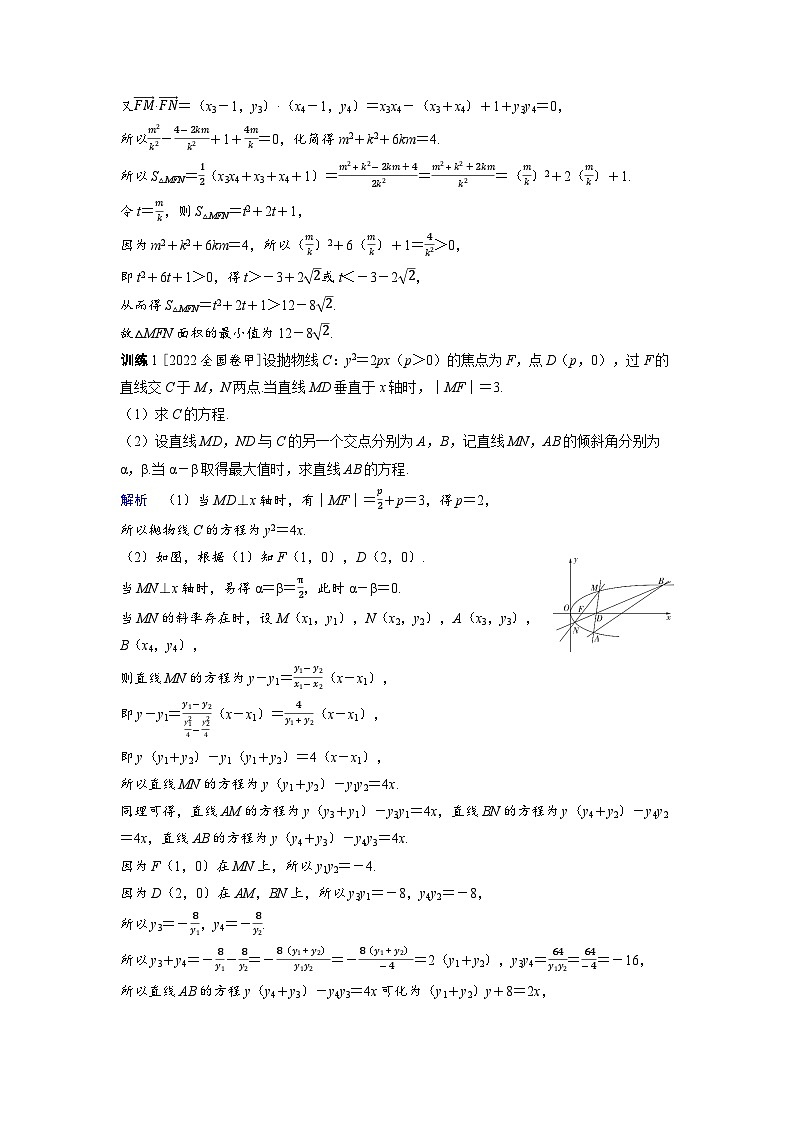 又FM·FN=(x3-1,y3)·(x4-1,y4)=x3x4-(x3+x4)+1+y3y4=0,
所以m2/k2-(4-2km)/k2+1+4m/k=0,化简得 m2+k2+6km=4.
所以 S△MFN=1/2(x3x4+x3+x4+1)=(m2+k2-2km+4)/2k2=(m2+k2+2km)/k2=(m/k)2+2(m/k)+1.
令 t=m/k,则 S△MFN=t2+2t+1,
因为 m2+k2+6km=4,所以(m/k)2+6(m/k)+1=4/k2>0,
即 t2+6t+1>0,得 t>-3+2√2或 t<-3-2√2,
从而得 S△MFN=t2+2t+1>12-8√2.
故△MFN 面积的最小值为 12-8√2.
训练1 [2022全国卷甲]设抛物线 C:y2=2px(p>0)的焦点为 F,点 D(p,0),过 F 的
直线交 C 于 M,N 两点.当直线 MD 垂直于 x 轴时,|MF|=3.
(1)求 C 的方程.
(2)设直线 MD,ND 与 C 的另一个交点分别为 A,B,记直线 MN,AB 的倾斜角分别为
α,β.当 α-β 取得最大值时,求直线 AB 的方程.
解析 (1)当 MD⊥x 轴时,有|MF|=p/2+p=3,得 p=2,
所以抛物线 C 的方程为 y2=4x.
(2)如图,根据(1)知 F(1,0),D(2,0).
当 MN⊥x 轴时,易得 α=β=π/2,此时 α-β=0.
当 MN 的斜率存在时,设 M(x1,y1),N(x2,y2),A(x3,y3),
B(x4,y4),
y
M
B
O
F
D
x
N
A
则直线 MN 的方程为 y-y1=(y1-y2)/(x1-x2)(x-x1),
即 y-y1=(y1-y2)/(y1²/4-y2²/4)(x-x1)=4/(y1+y2)(x-x1),
即 y(y1+y2)-y1(y1+y2)=4(x-x1),
所以直线 MN 的方程为 y(y1+y2)-y1y2=4x.
同理可得,直线 AM 的方程为 y(y3+y1)-y3y1=4x,直线 BN 的方程为 y(y4+y2)-y4y2
=4x,直线 AB 的方程为 y(y4+y3)-y4y3=4x.
因为 F(1,0)在 MN 上,所以 y1y2=-4.
因为 D(2,0)在 AM,BN 上,所以 y3y1=-8,y4y2=-8,
所以 y3=-8/y1,y4=-8/y2.
所以 y3+y4=-8/y1-8/y2=-8(y1+y2)/y1y2=-8(y1+y2)/-4=2(y1+y2),y3y4=64/y1y2=64/-4=-16,
所以直线 AB 的方程 y(y4+y3)-y4y3=4x 可化为(y1+y2)y+8=2x,